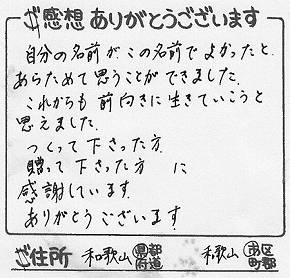 ご感想ありがとうございます
自分の名前がこの名前でよかったと、
あらためて思うことができました。
これからも前向きに生きていこうと
思えました。
つくって下さった方、
贈って下さった方 に
感謝しています。
ありがとうございます。
ご住所 和歌山 都道府県 和歌山 市区町郡